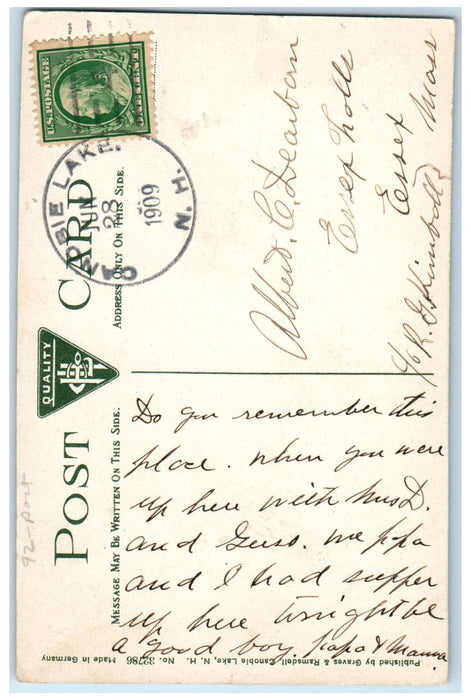 U.S. POSTAGE
ONE CENT
CANOBIE LAKE.
JUN
28
1909
N. H.
POST CARD
ADDRESS ONLY ON THIS SIDE.
Albert. C. Dearborn
Essex Falls
Essex Mass
c/o R. G. Kimball
QUALITY
MESSAGE MAY BE WRITTEN ON THIS SIDE.
Do you remember this
place. when you were
up here with Mrs D.
and
and I had supper
up here tonight be
a good boy. Papa & Mamma
Published by Graves & Ramsdell, Canobie Lake, N. H. No. 32786 Made in Germany
92-Port